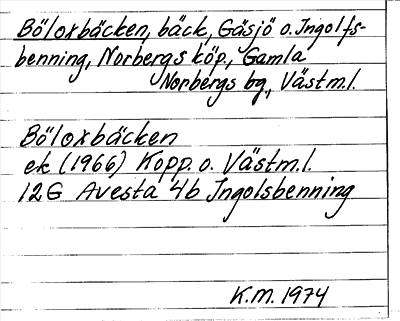 Böloxbäcken, bäck, Gåsjö o. Ingolfs-
benning, Norbergs köp., Gamla
Norbergs bg., Västm.l.
Böloxbäcken
ek (1966) Kopp. o. Västm.l.
12G Avesta 4b Ingolsbenning
K.M. 1974